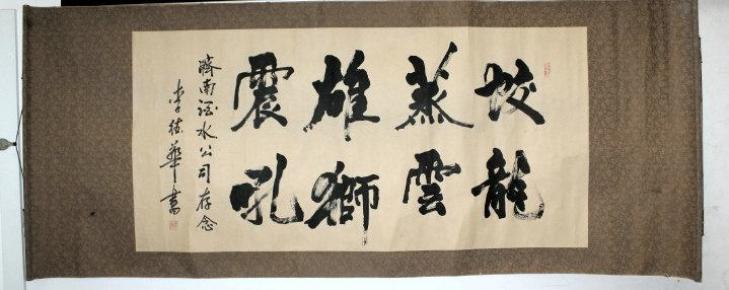 蛟龍
蒸雲
雄獅
震吼
濟南酒水公司存念
李德華書